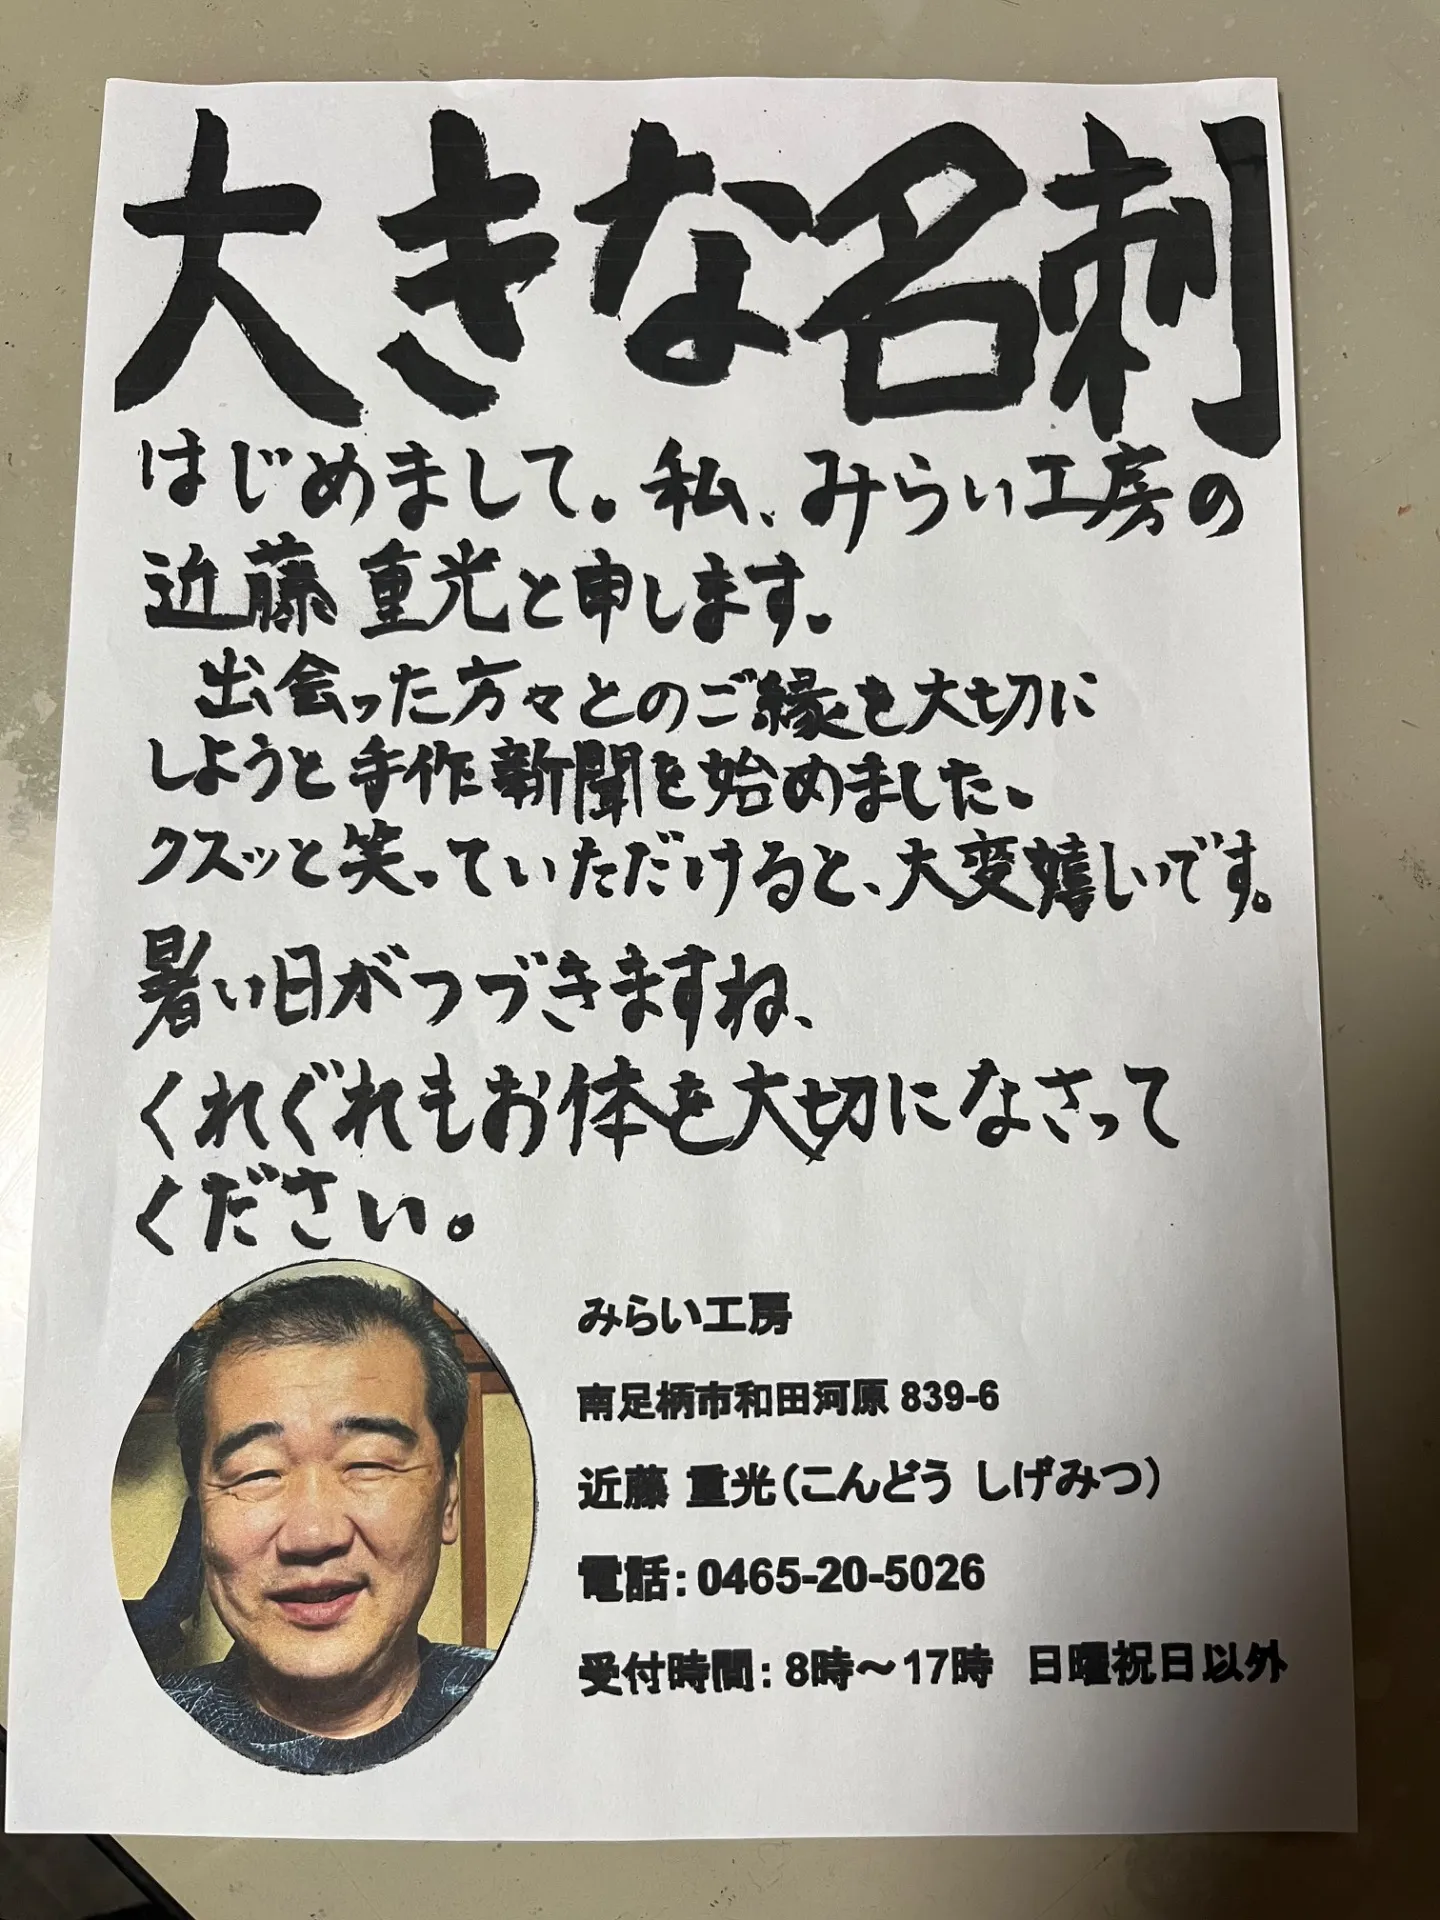 大きな名刺
はじめまして。私、みらい工房の
近藤 重光と申します。
出会った方々とのご縁を大切に
しようと手作新聞を始めました。
クスッと笑っていただけると、大変嬉しいです。
暑い日がつづきますね、
くれぐれもお体を大切になさって
ください。
みらい工房
南足柄市和田河原 839-6
近藤 重光（こんどう しげみつ）
電話：0465-20-5026
受付時間：8時～17時 日曜祝日以外